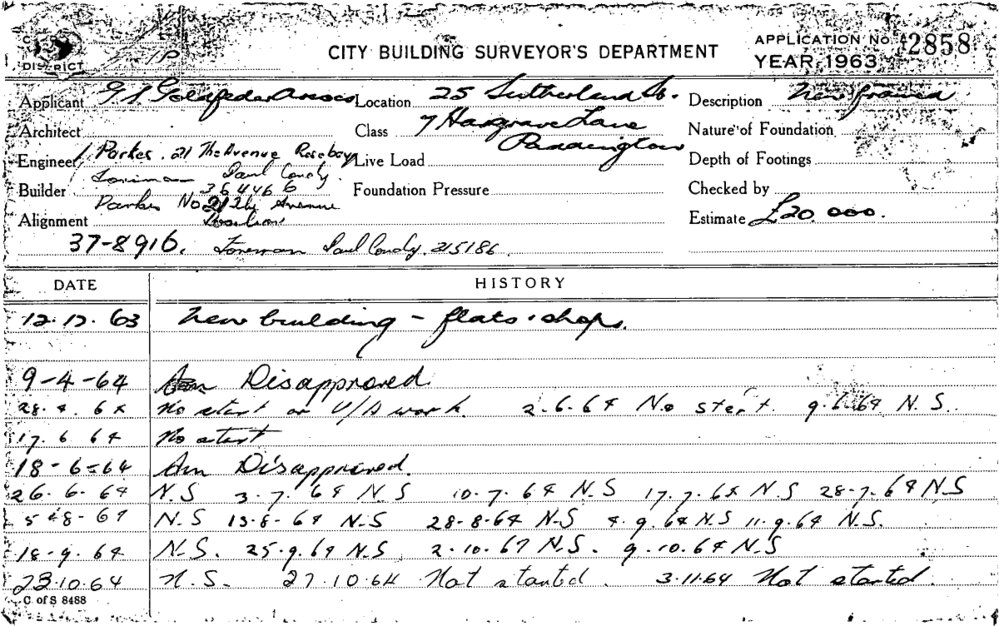 CITY BUILDING SURVEYOR'S DEPARTMENT
APPLICATION No. 2858
YEAR, 1963
DISTRICT
Applicant G. Assocs
Location 25 Sutherland St.
Description New ground
Architect
Class 7 Hargrave Lane
Paddington
Nature of Foundation
Engineer Parker. 21 The Avenue Rosebery
Live Load
Depth of Footings
Foreman Paul Condy
Builder 364466
Foundation Pressure
Checked by
Parker No 21 The Avenue
Alignment
Estimate £20,000.
37-8916. Foreman Paul Condy. 215186
DATE HISTORY
12.12.63 New building - flats & shops.
9-4-64 Am Disapproved.
28.4.64 No start on U/A work. 2.6.64 No start. 9.6.64 N.S.
17.6.64 No start
18-6-64 Am Disapproved.
26.6.64 N.S 3.7.64 N.S 10.7.64 N.S 17.7.64 N.S 28.7.64 N.S
5-8-64 N.S 13-8-64 N.S 28-8-64 N.S 4.9.64 N.S 11.9.64 N.S.
18.9.64 N.S. 25.9.64 N.S. 2.10.64 N.S. 9.10.64 N.S
23.10.64 N.S. 27.10.64 Not started. 3.11.64 Not started.
C of S 8488